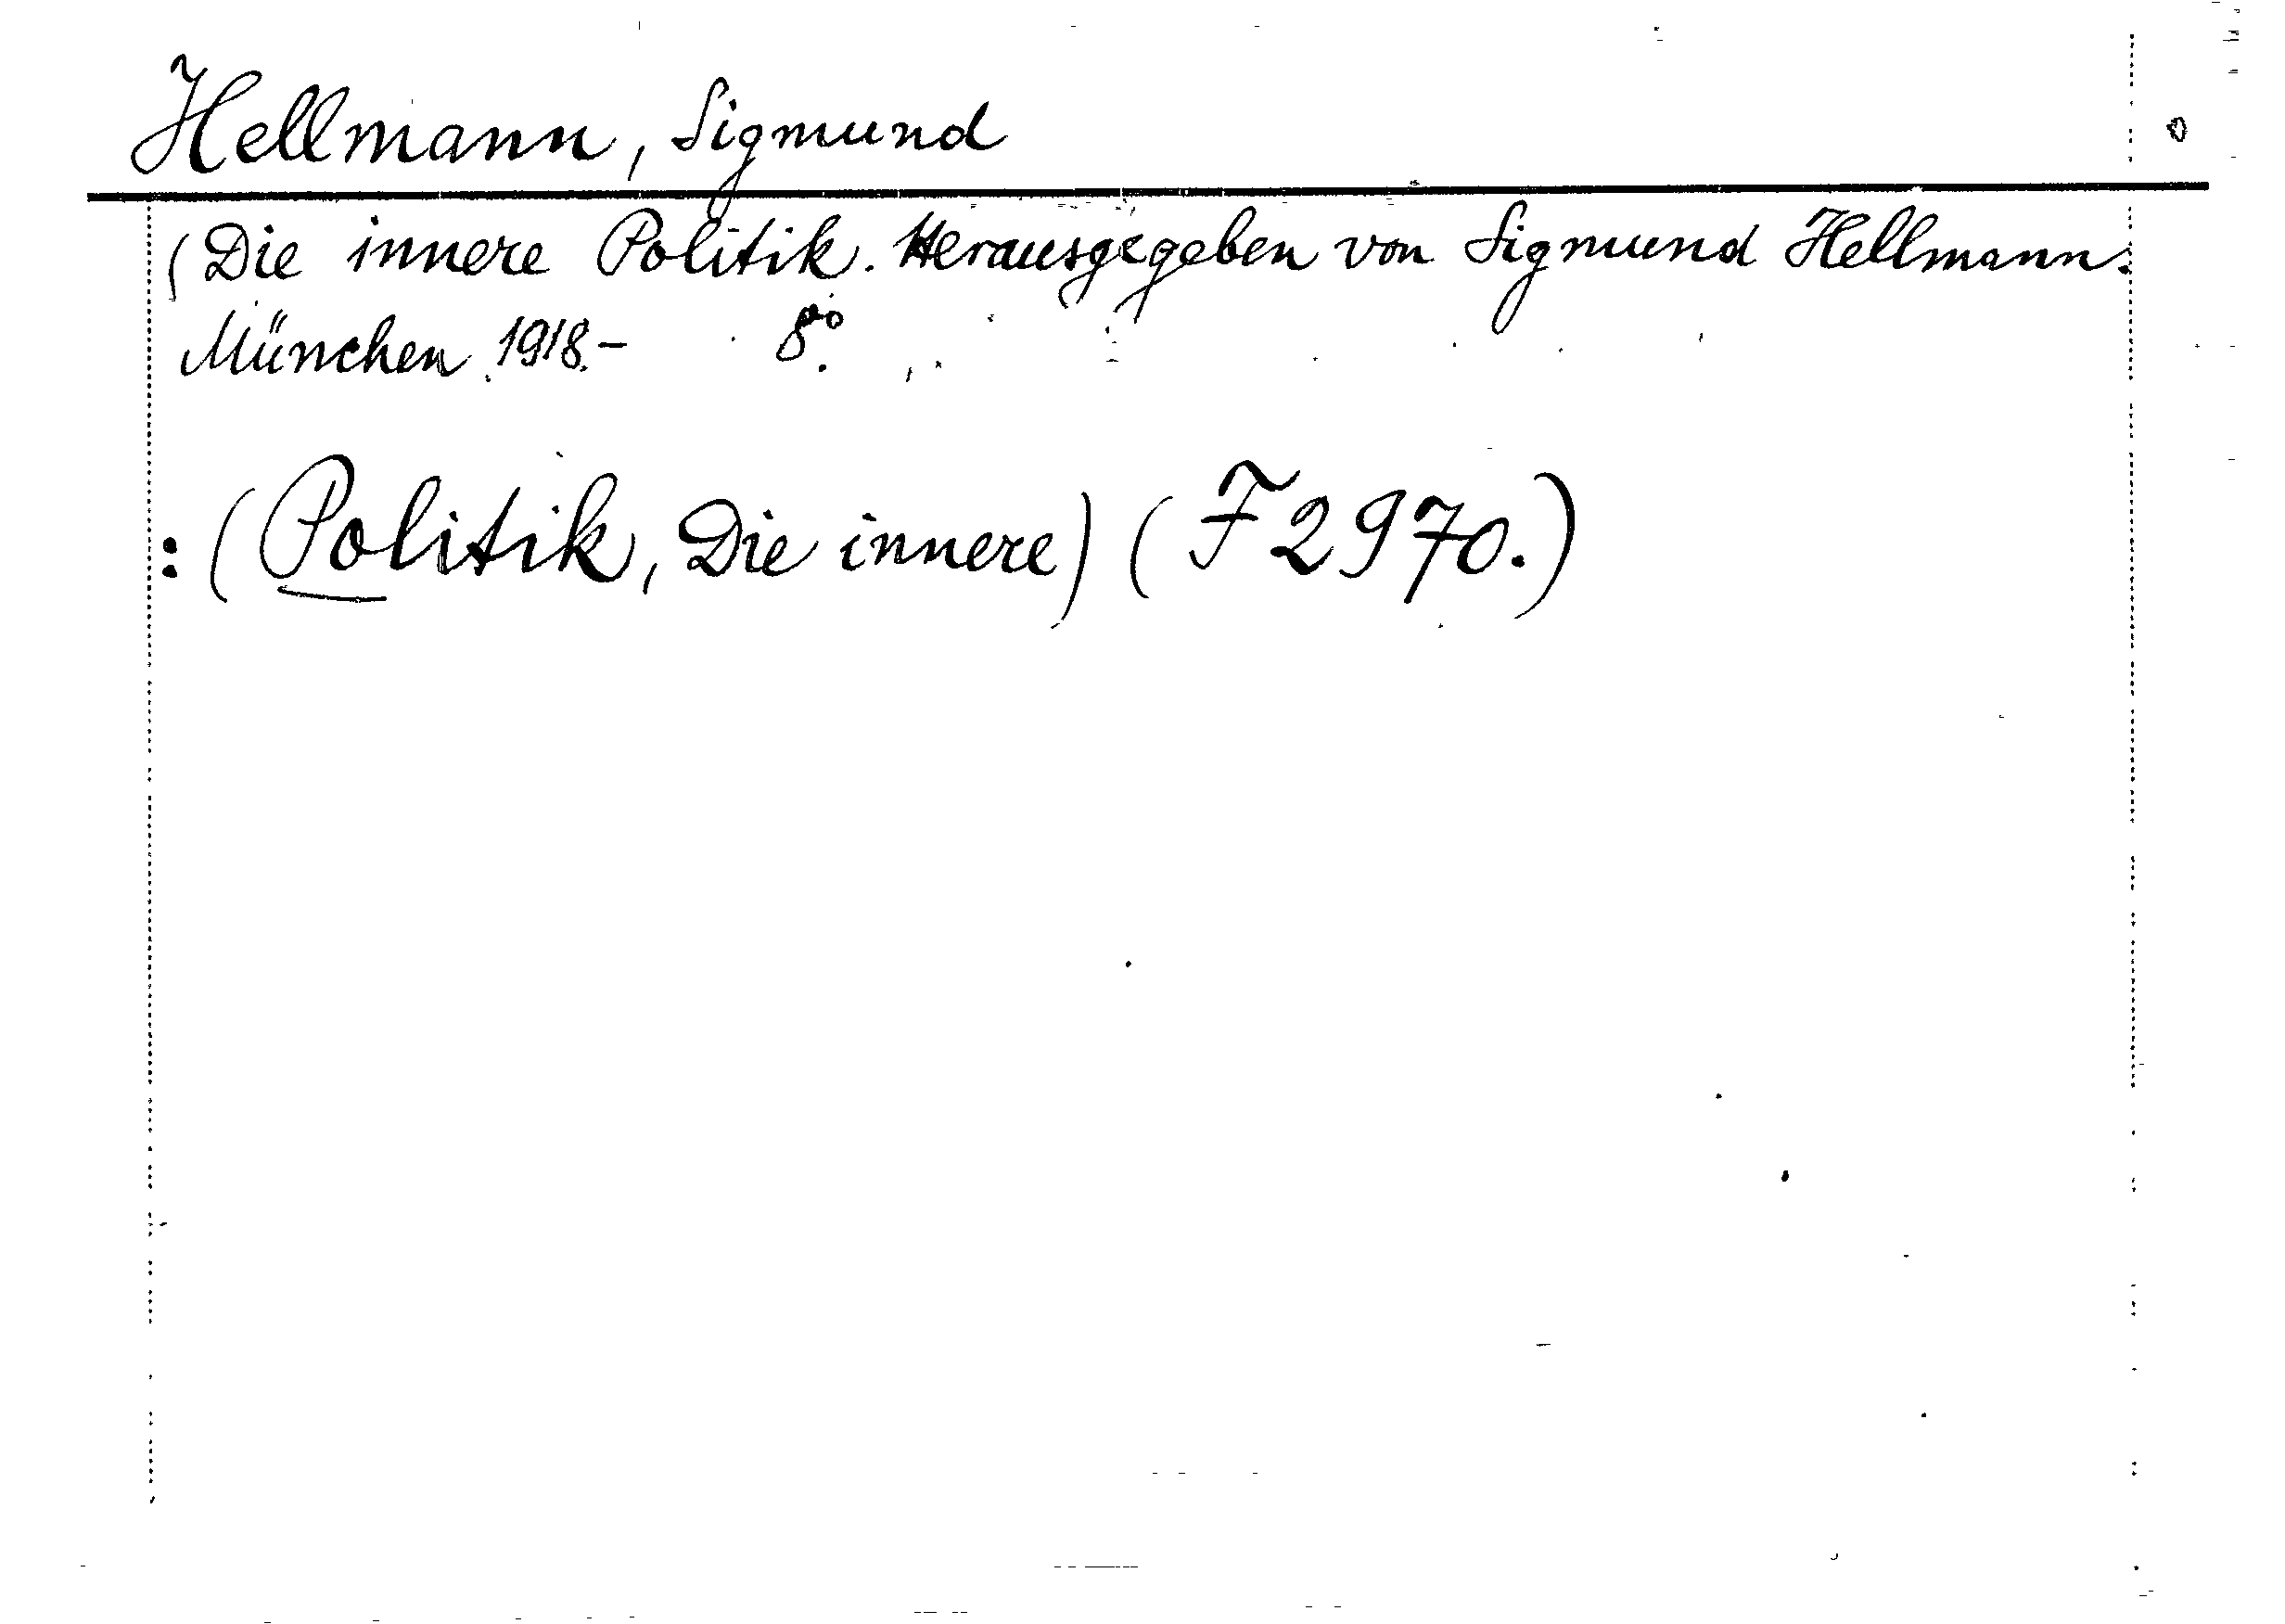 Hellmann, Sigmund
(Die innere Politik. Herausgegeben von Sigmund Hellmann.
München 1918.- 8°.
: (Politik, Die innere) (F 2970.)